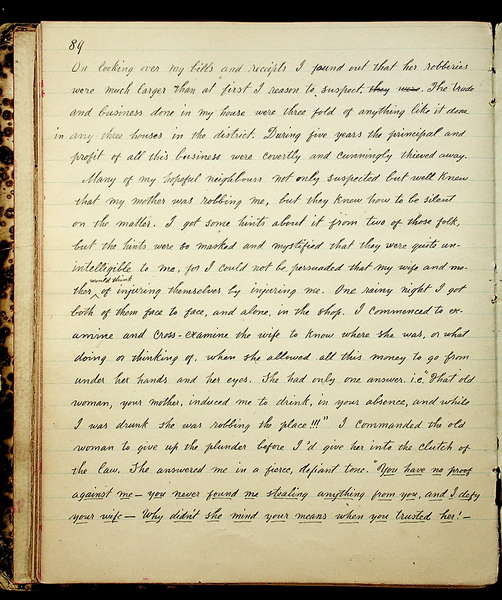 89
On looking over my bills and receipts I found out that her robberies
were much larger than at first I reason to suspect. they were. The trade
and business done in my house were three fold of anything like it done
in any three houses in the district. During five years the principal and
profit of all this business were covertly and cunningly thieved away.
Many of my hopeful neighbours not only suspected but well knew
that my mother was robbing me, but they knew how to be silent
on the matter. I got some hints about it from two of those folk,
but the hints were so masked and mystified that they were quite un-
intelligible to me, for I could not be persuaded that my wife and mo-
would think
ther of injuring themselves by injuring me. One rainy night I got
both of them face to face, and alone, in the shop. I commenced to ex-
amine and cross-examine the wife to know where she was, or what
doing or thinking of, when she allowed all this money to go from
under her hands and her eyes. She had only one answer. i.e. "That old
woman, your mother, induced me to drink, in your absence, and while
I was drunk she was robbing the place!!!" I commanded the old
woman to give up the plunder before I'd give her into the clutch of
the law. She answered me in a fierce, defiant tone. "You have no proof
against me — you never found me stealing anything from you, and I defy
your wife — Why didn't she mind your means when you trusted her! —